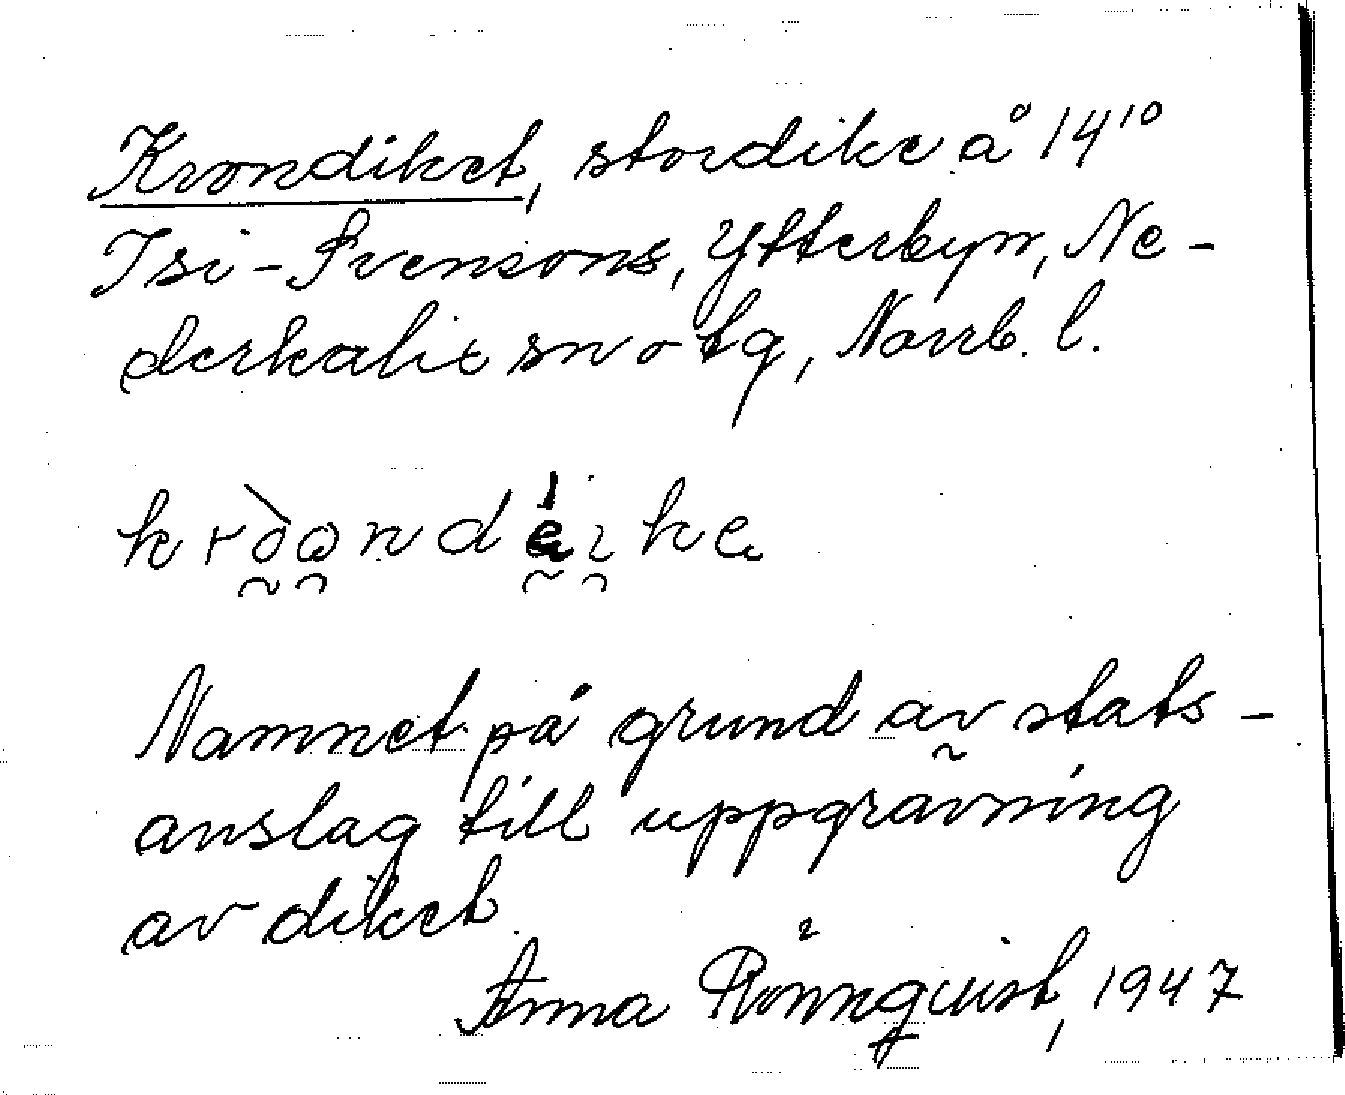 Krondiket, stordike å 14¹⁰
Isi-Svensons, Ytterbyn, Ne-
derkalix sn o tg, Norrb. l.
Namnet på grund av stats-
anslag till uppgrävning
av diket.
Anna Rönnquist, 1947